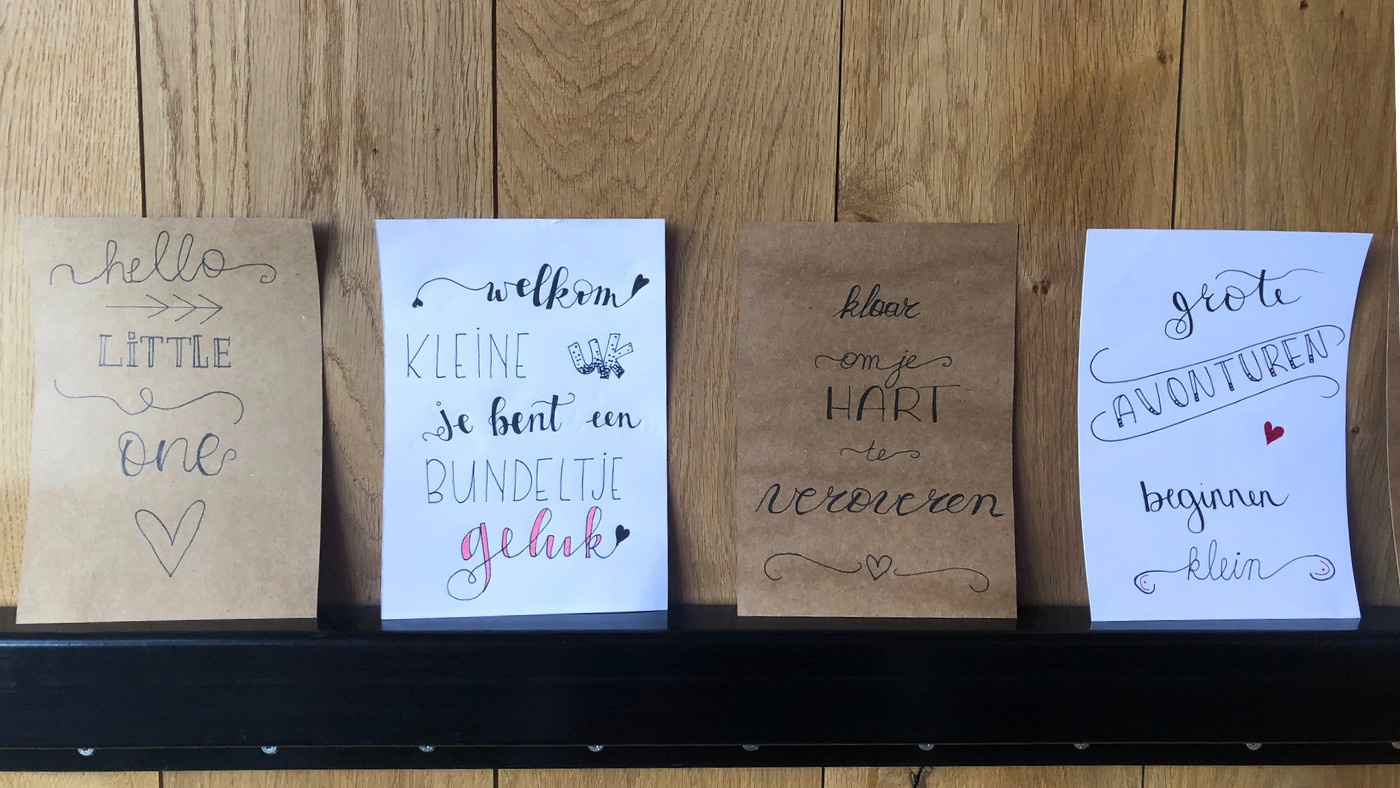 hello
LiTTLE
one
welkom
KLEiNE UK
je bent een
BUNDELTJE
geluk
klaar
om je
HART
te
veroveren
grote
AVONTUREN
beginnen
klein